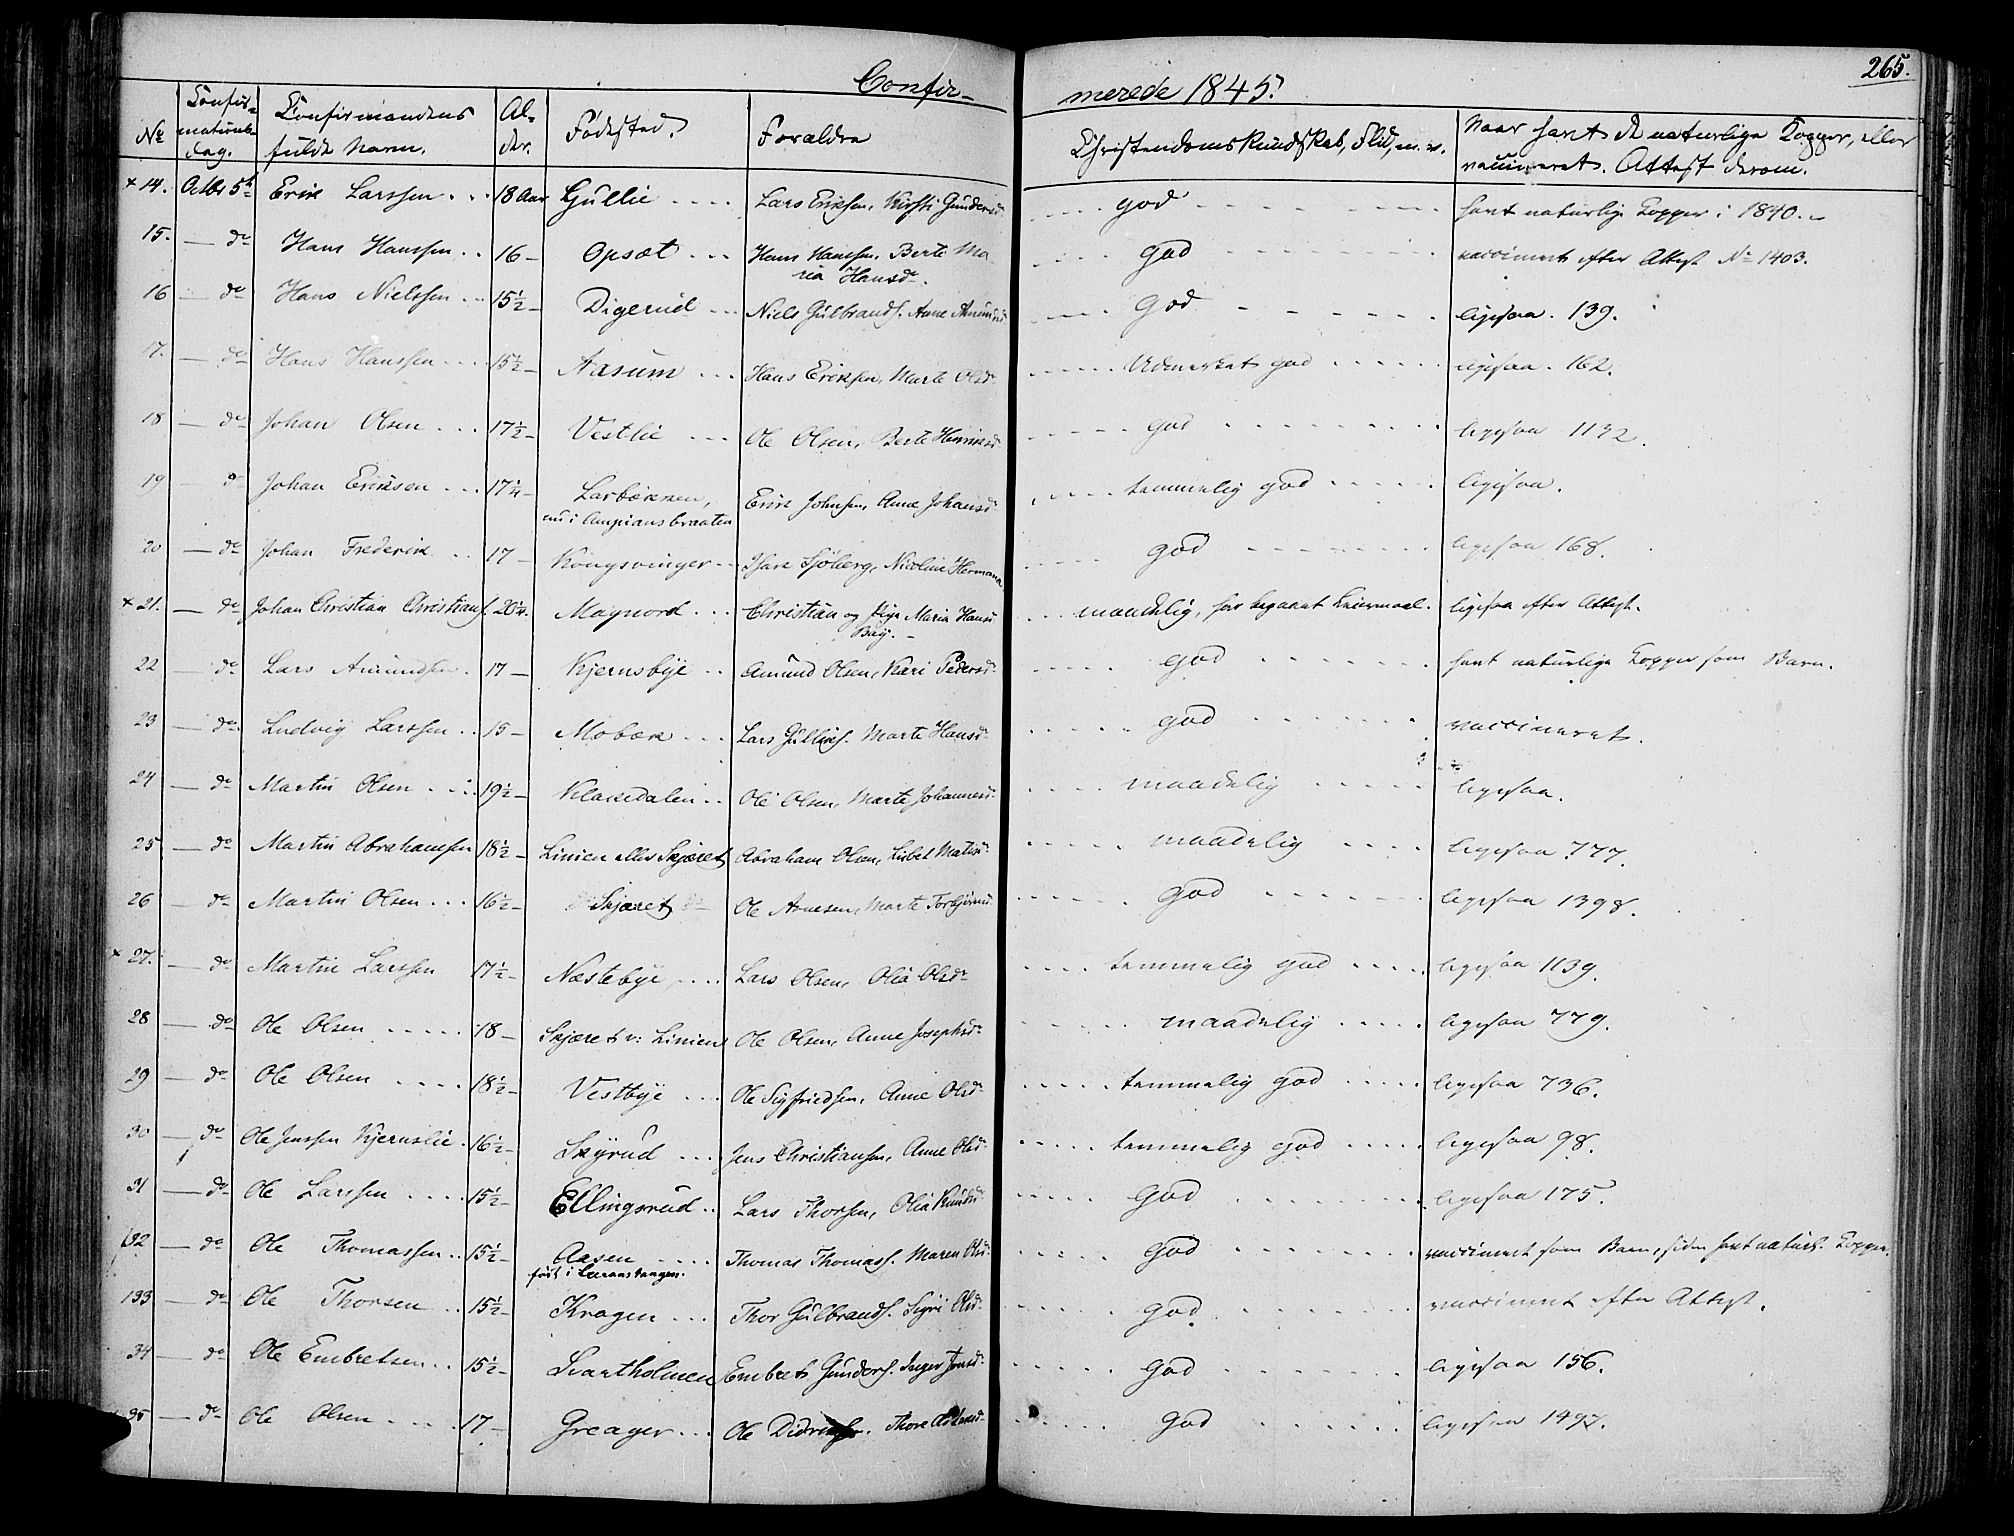 265.
Confir-
merede 1845.
No
Confir-
mations-
dag.
Confirmandens
fulde Navn.
Al-
der.
Fødested.
Forældre
Christendomskundskab, Flid, m. v.
Naar havt de naturlige Kopper, eller
vaccineret. Attest derom.
+ 14. Octbr 5te Erik Larssen . . 18 Aar Gullie . . . . Lars Eriksen, Kirsti Gundersd. god havt naturlige Kopper i 1840.
15. — do Hans Hanssen . . 16 — Opsæt . . . Hans Hanssen, Berte Ma-
ria Hansdr. god vaccineret efter Attest No 1403.
16 — do Hans Nielssen . . 15½ — Digerud . . . Niels Gulbrands. Anne Amundsd. god ligesaa. 139.
17. — do Hans Hanssen . . . 15½ — Aasum . . . Hans Eriksen, Marte Olsdr. Udmerket god ligesaa. 162.
18 — do Johan Olsen . . . 17½ — Vestlie . . . Ole Olsen, Berte Henriksd. god ligesaa 1132.
19 — do Johan Eriksen . . . 17¼ — Larbekken,
nu i Ampiansbraaten Erik Johnsen, Anne Johansd. temmelig god ligesaa.
20 — do Johan Frederik . . 17 — Kongsvinger . . Sjöberg, Nicoline Hermana god ligesaa 168.
+ 21. — do Johan Christian Christians. 20¼. Magnord . . . Christian og Pige Maria Hansd.
Bay. maadelig, har begaaet Leiermaal. ligesaa efter Attest.
22 — do Lars Amundsen . 17 — Kjernsbye . . Amund Olsen, Kari Pedersd. god havt naturlige Kopper som Barn.
23 — do Ludvig Larssen . . 15 — Mobæk . . . Lars Gulliks. Marte Hansdr. god vaccineret.
24 — do Martin Olsen . . . 19½ — Klakedalen . . Ole Olsen, Marte Johannesd. maadelig ligesaa.
25 — do Martin Abrahamsen 18½ — Linien eller Skjæret Abraham Olsen, Lisbet Matisd. maadelig ligesaa 777.
26 — do Martin Olsen . . . 16½ — Skjæret Ole Arnesen, Marte Torbjörnsd. god ligesaa 1398.
+ 27. — do Martin Larssen 17½ — Næstebye, . . . . Lars Olsen, Olia Olsdr. temmelig god ligesaa 1139.
28 — do Ole Olsen . . . . . 18 — Skjæret v: Linien Ole Olsen, Anne Josephsdr. maadelig ligesaa 779.
29 — do Ole Olsen . . . . 18½ — Vestbye . . . Ole Sigfriedsen, Anne Olsd. temmelig god ligesaa 736.
30 — do Ole Jenssen Kjernslie . 16½ — Skyrud . . . Jens Christiansen, Anne Olsd. temmelig god ligesaa 98.
31 — do Ole Larssen . . . . 15½ — Ellingsrud . . Lars Thorsen, Olia Knudsd. god ligesaa 175.
132 — do Ole Thomassen . . 15½ — Aasen . . . .
født i Leeranstangen. Thomas Thomass. Maren Olsd. god vaccineret som Barn, siden havt naturl. Kopper.
133 — do Ole Thorsen . . 15½ — Kragen . . . Thor Gulbrands. Sigri Olsd. god vaccineret efter Attest.
34 — do Ole Embretsen . . 15½ — Svartholmen Embret Gunders. Inger Jonsd. god ligesaa 156.
35 — do Ole Olsen . . . . 17 — Greager . . . Ole Didriksen. Thore god ligesaa 1497.